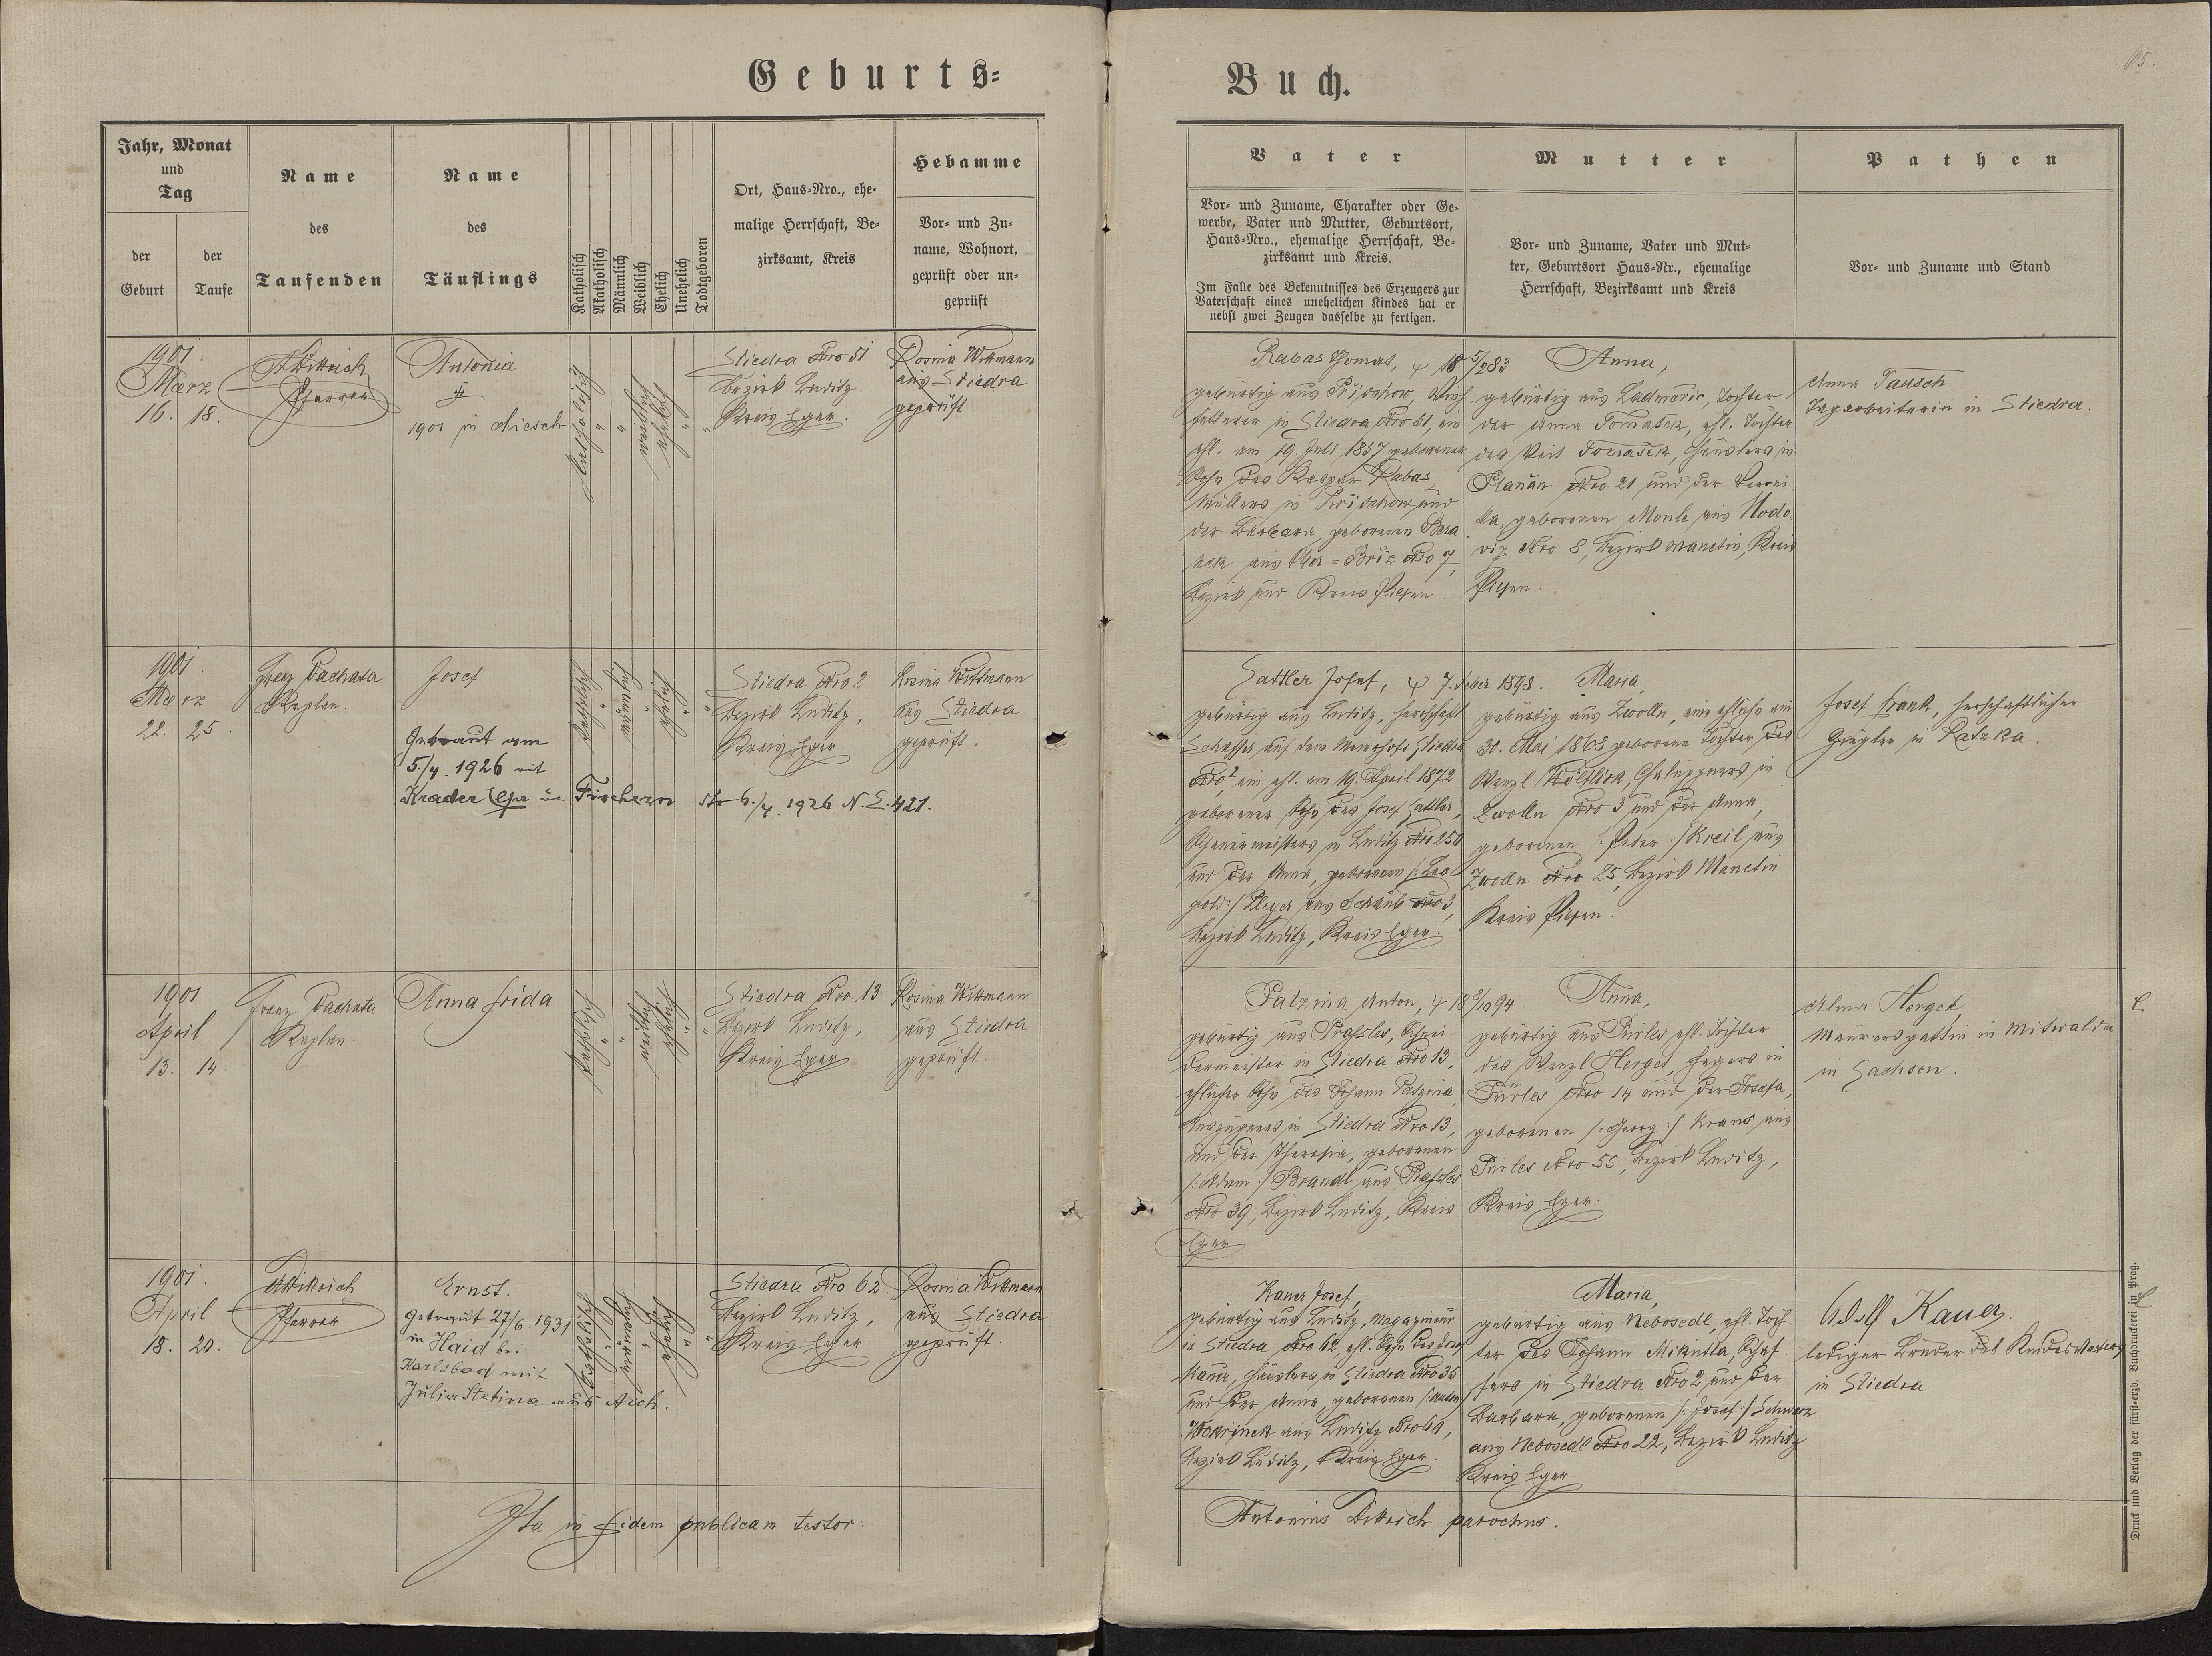 Geburts-
Buch.
65.
Jahr, Monat
und
Tag
der
Geburt
der
Taufe
Name
des
Taufenden
Name
des
Täuflings
Katholisch
Akatholisch
Männlich
Weiblich
Ehelich
Unehelich
Todtgeboren
Ort, Haus-Nro., ehe-
malige Herrschaft, Be-
zirksamt, Kreis
Hebamme
Vor- und Zu-
name, Wohnort,
geprüft oder un-
geprüft
Vater
Vor- und Zuname, Charakter oder Ge-
werbe, Vater und Mutter, Geburtsort,
Haus-Nro., ehemalige Herrschaft, Be-
zirksamt und Kreis.
Im Falle des Bekenntnisses des Erzeugers zur
Vaterschaft eines unehelichen Kindes hat er
nebst zwei Zeugen dasselbe zu fertigen.
Mutter
Vor- und Zuname, Vater und Mut-
ter, Geburtsort Haus-Nr., ehemalige
Herrschaft, Bezirksamt und Kreis
Pathen
Vor- und Zuname und Stand
1901.
März
16. 18.
ADittrich
Pfarrer
Antonia
1901 in Chiesch
katholisch
weiblich
ehelich
Stiedra Nro 51
Bezirk Luditz
Kreis Eger.
Rosina Wittmann
aus Stiedra
geprüft.
Rabas Thomas,
gebürtig aus Přischow, Vieh-
fütterer in Stiedra Nro 51, ein
ehl. am 19. Juli 1857 geborener
Sohn des Kaspar Rabas,
Müllers in Přischow und
der Barbara, geborenen
aus Nro 7,
Bezirk und Kreis Pilsen.
Anna,
gebürtig aus Ladmeric, Tochter
der Anna Tomašek, ehl. Tochter
des Veit Tomašek, Häuslers in
Nro 21 und der Veroni-
ka, geborenen aus
Nro 8, Bezirk Manetin, Kreis
Pilsen.
Anna Tausch
Tagarbeiterin in Stiedra.
1901.
März
22. 25.
Franz Pachata
Kaplan.
Josef
Getraut am
5./4. 1926 mit
Krader in Fischern 6./4. 1926 N. E. 421.
katholisch
männlich
ehelich
Stiedra Nro 2
Bezirk Luditz,
Kreis Eger
Rosina Wittmann
aus Stiedra
geprüft.
Sattler Josef, 7. Feber 1898.
gebürtig aus Luditz, herrschaftl.
Schaffer auf dem Meierhofe Stiedra
Nro 2, ein ehl. am 19. April 1872
geborener Sohn des Josef Sattler,
in Luditz Nro 250
und der Anna, geborenen /: Leo-
pold :/ Meyer aus Schaub Nro 3,
Bezirk Luditz, Kreis Eger.
Maria,
gebürtig aus Zwolln, eine eheliche am
30. Mai 1868 geborene Tochter des
Wenzl Chaluppners in
Zwolln Nro 3 und der Anna,
geborenen /: Peter :/ Kreil aus
Zwolln Nro 25, Bezirk Manetin
Kreis Pilsen.
Josef Frank, herrschaftlicher
in Ratzka.
1901
April
13. 14.
Franz Pachata
Kaplan.
Anna Frida
katholisch
weiblich
ehelich
Stiedra Nro 13
Bezirk Luditz,
Kreis Eger
Rosina Wittmann
aus Stiedra
geprüft.
Patzina Anton,
gebürtig aus Prohles, Schnei-
dermeister in Stiedra Nro 13,
ehlicher Sohn des Johann Patzina
Auszügners in Stiedra Nro 13,
und der Theresia, geborenen
/: Adam :/ Brandl aus Prohles
Nro 39, Bezirk Luditz, Kreis
Eger
Anna,
gebürtig aus Pürles, ehl. Tochter
des Wenzl Herget, Hegers in
Pürles Nro 14 und der Josefa,
geborenen /: Georg :/ Kraus aus
Pürles Nro 55, Bezirk Luditz,
Kreis Eger.
Alma Herget,
Maurersgattin in Mitwalda
in Sachsen.
1901.
April
18. 20.
ADittrich
Pfarrer
Ernst.
getraut 27/6. 1931
in Haid bei
Karlsbad mit
Julia Stetina aus Aich.
katholisch
männlich
ehelich
Stiedra Nro 62
Bezirk Luditz,
Kreis Eger
Rosina Wittmann
aus Stiedra
geprüft.
Kauer Josef,
gebürtig aus Luditz, Magazineur
in Stiedra Nro 62, ehl. Sohn des Josef
Kauer, Häuslers in Stiedra Nro 35
und der Anna, geborenen /: Anton :/
Wokřinek aus Luditz Nro 69,
Bezirk Luditz, Kreis Eger.
Maria,
gebürtig aus Nebosedl, ehl. Toch-
ter des Johann Mikutta, Schaf-
fers in Stiedra Nro 2 und der
Barbara, geborenen /: Josef :/ Schwarz
aus Nebosedl Nro 22, Bezirk Luditz
Kreis Eger.
Adolf Kauer
lediger Bruder des Kindesvaters
in Stiedra
Ita in fidem publicam testor:
Antonius Dittrich parochus.
Druck und Verlag der fürst-erzb. Buchdruckerei in Prag.